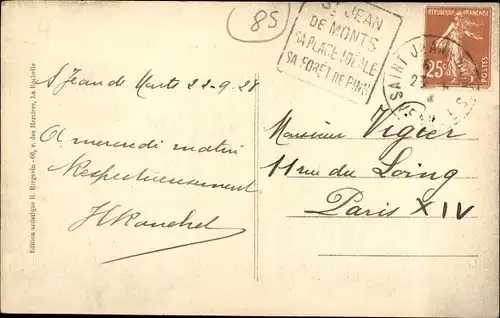 85
St JEAN
DE MONTS
SA PLAGE IDÉALE
SA FORÊT DE PINS
RÉPUBLIQUE FRANÇAISE
25c
POSTES
SAINT JEAN
S Jean de Monts 22-9-28
A mercredi matin
Respectueusement
Monsieur Vigier
11 rue du Loing
Paris XIV
Edition artistique R. Bergevin - 66, r. des Merciers, La Rochelle